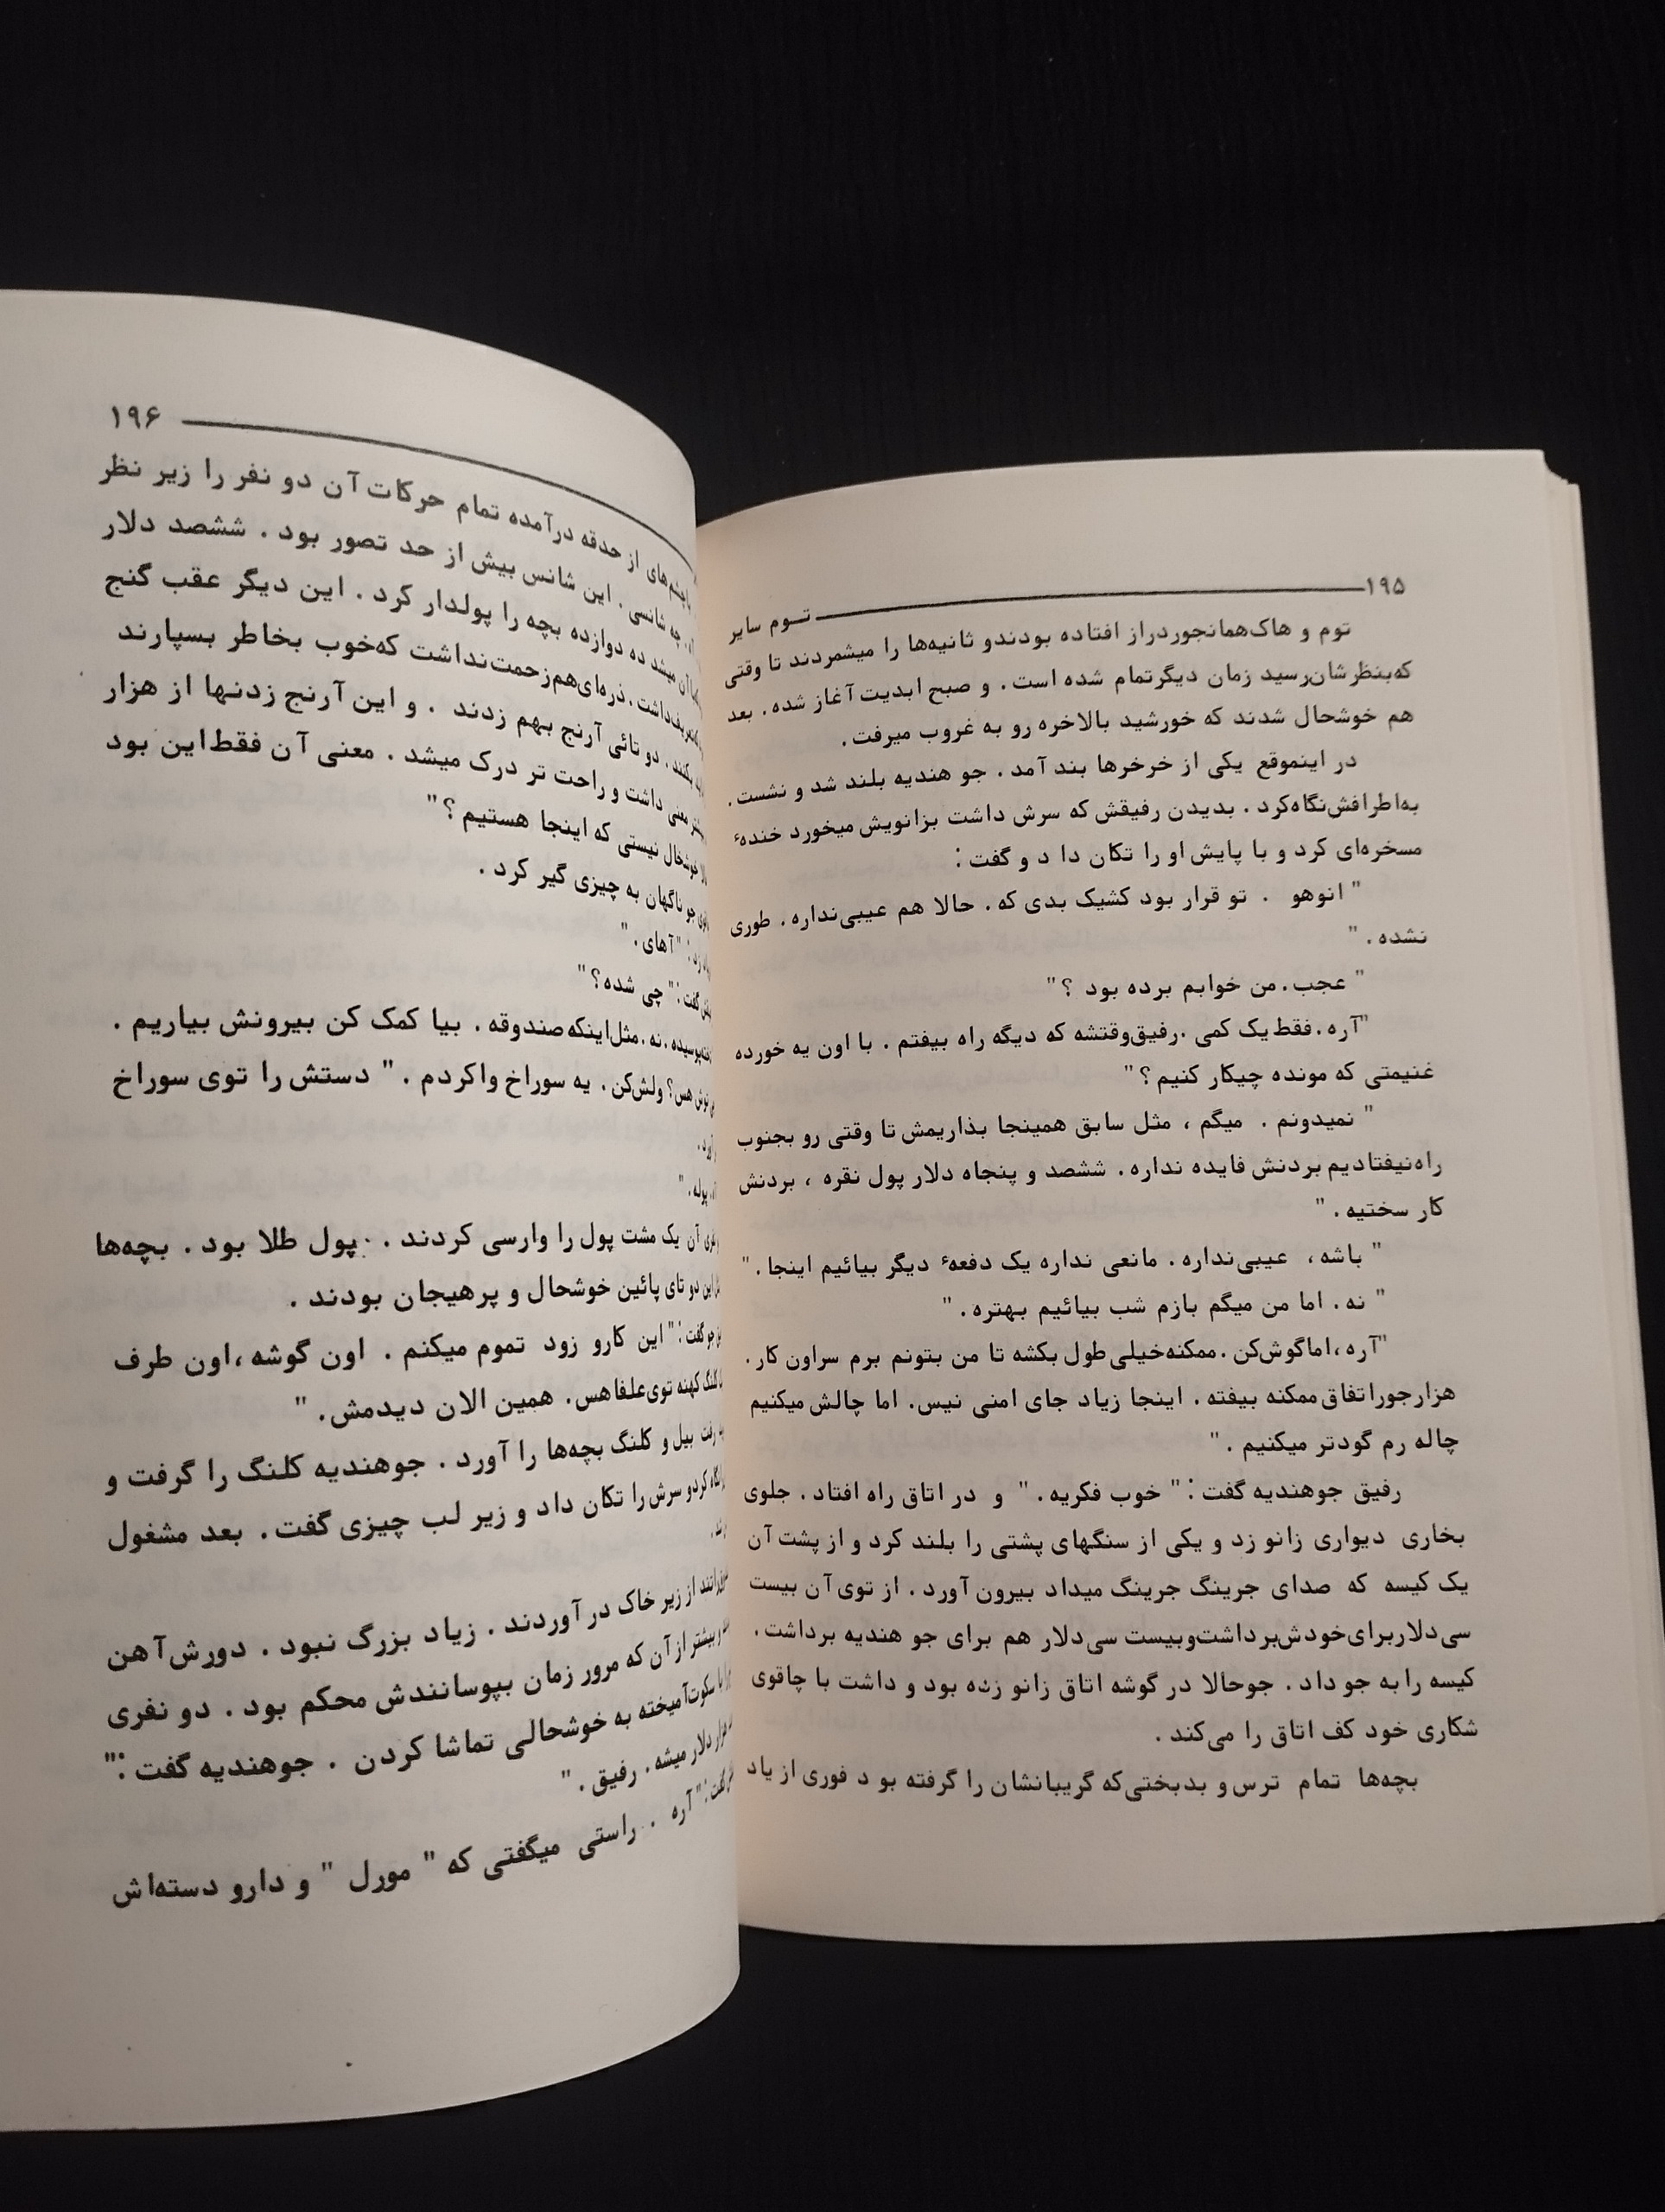 ۱۹۵
تـوم سایر
توم و هاک‌همانجوردراز افتاده بودندو ثانیه‌ها را میشمردند تا وقتی
که‌بنظرشان‌رسید زمان دیگرتمام شده است. و صبح ابدیت آغاز شده. بعد
هم خوشحال شدند که خورشید بالاخره رو به غروب میرفت.
در اینموقع یکی از خرخرها بند آمد. جو هندیه بلند شد و نشست.
به‌اطرافش‌نگاه‌کرد. بدیدن رفیقش که سرش داشت بزانویش میخورد خندهٔ
مسخره‌ای کرد و با پایش او را تکان دا د و گفت:
" انوهو . تو قرار بود کشیک بدی که. حالا هم عیبی‌نداره. طوری
نشده. "
" عجب. من خوابم برده بود ؟ "
"آره.فقط یک کمی .رفیق‌وقتشه که دیگه راه بیفتم. با اون یه خورده
غنیمتی که مونده چیکار کنیم؟ "
" نمیدونم . میگم ، مثل سابق همینجا بذاریمش تا وقتی رو بجنوب
راه‌نیفتادیم بردنش فایده نداره. ششصد و پنجاه دلار پول نقره ، بردنش
کار سختیه. "
" باشه، عیبی‌نداره. مانعی نداره یک دفعهٔ دیگر بیائیم اینجا. "
" نه. اما من میگم بازم شب بیائیم بهتره. "
"آره،اماگوش‌کن.ممکنه‌خیلی‌طول بکشه تا من بتونم برم سراون کار.
هزارجوراتفاق‌ممکنه بیفته. اینجا زیاد جای امنی نیس. اما چالش میکنیم
چاله رم گودتر میکنیم. "
رفیق جوهندیه گفت: " خوب فکریه. " و در اتاق راه افتاد. جلوی
بخاری دیواری زانو زد و یکی از سنگهای پشتی را بلند کرد و از پشت آن
یک کیسه که صدای جرینگ جرینگ میداد بیرون آورد. از توی آن بیست
سی‌دلاربرای‌خودش‌برداشت‌وبیست سی‌دلار هم برای جو هندیه برداشت.
کیسه را به جو داد. جوحالا در گوشه اتاق زانو زده بود و داشت با چاقوی
شکاری خود کف اتاق را می‌کند.
بچه‌ها تمام ترس و بدبختی‌که گریبانشان را گرفته بو د فوری از یاد
۱۹۶
از حدقه درآمده تمام حرکات آن دو نفر را زیر نظر
چه شانسی. این شانس بیش از حد تصور بود. ششصد دلار
آن میشد ده دوازده بچه را پولدار کرد. این دیگر عقب گنج
داشت. ذره‌ای‌هم‌زحمت‌نداشت که‌خوب بخاطر بسپارند
بکنند. دو تائی آرنج بهم زدند . و این آرنج زدنها از هزار
معنی داشت و راحت تر درک میشد. معنی آن فقط‌این بود
خوشحال نیستی که اینجا هستیم؟ "
جو ناگهان به چیزی گیر کرد.
"آهای. "
گفت: " چی شده؟ "
نه. مثل‌اینکه‌صندوقه. بیا کمک کن بیرونش بیاریم.
توش هس؟ ولش‌کن. یه سوراخ واکردم. " دستش را توی سوراخ
پوله. "
آن یک مشت پول را وارسی کردند. پول طلا بود. بچه‌ها
این دو تای پائین خوشحال و پرهیجان بودند.
جو گفت: " این کارو زود تموم میکنم. اون گوشه،اون طرف
کلنگ کهنه توی‌علفا هس. همین الان دیدمش. "
رفت بیل و کلنگ بچه‌ها را آورد. جوهندیه کلنگ را گرفت و
نگاه کردو سرش را تکان داد و زیر لب چیزی گفت. بعد مشغول
از زیر خاک در آوردند. زیاد بزرگ نبود. دورش‌آهن
بیشتر از آن که مرور زمان بپوسانندش محکم بود. دو نفری
سکوت‌آمیخته به خوشحالی تماشا کردن . جوهندیه گفت: "
هزار دلار میشه. رفیق. "
گفت: "آره . راستی میگفتی که " مورل " و دارو دسته‌اش